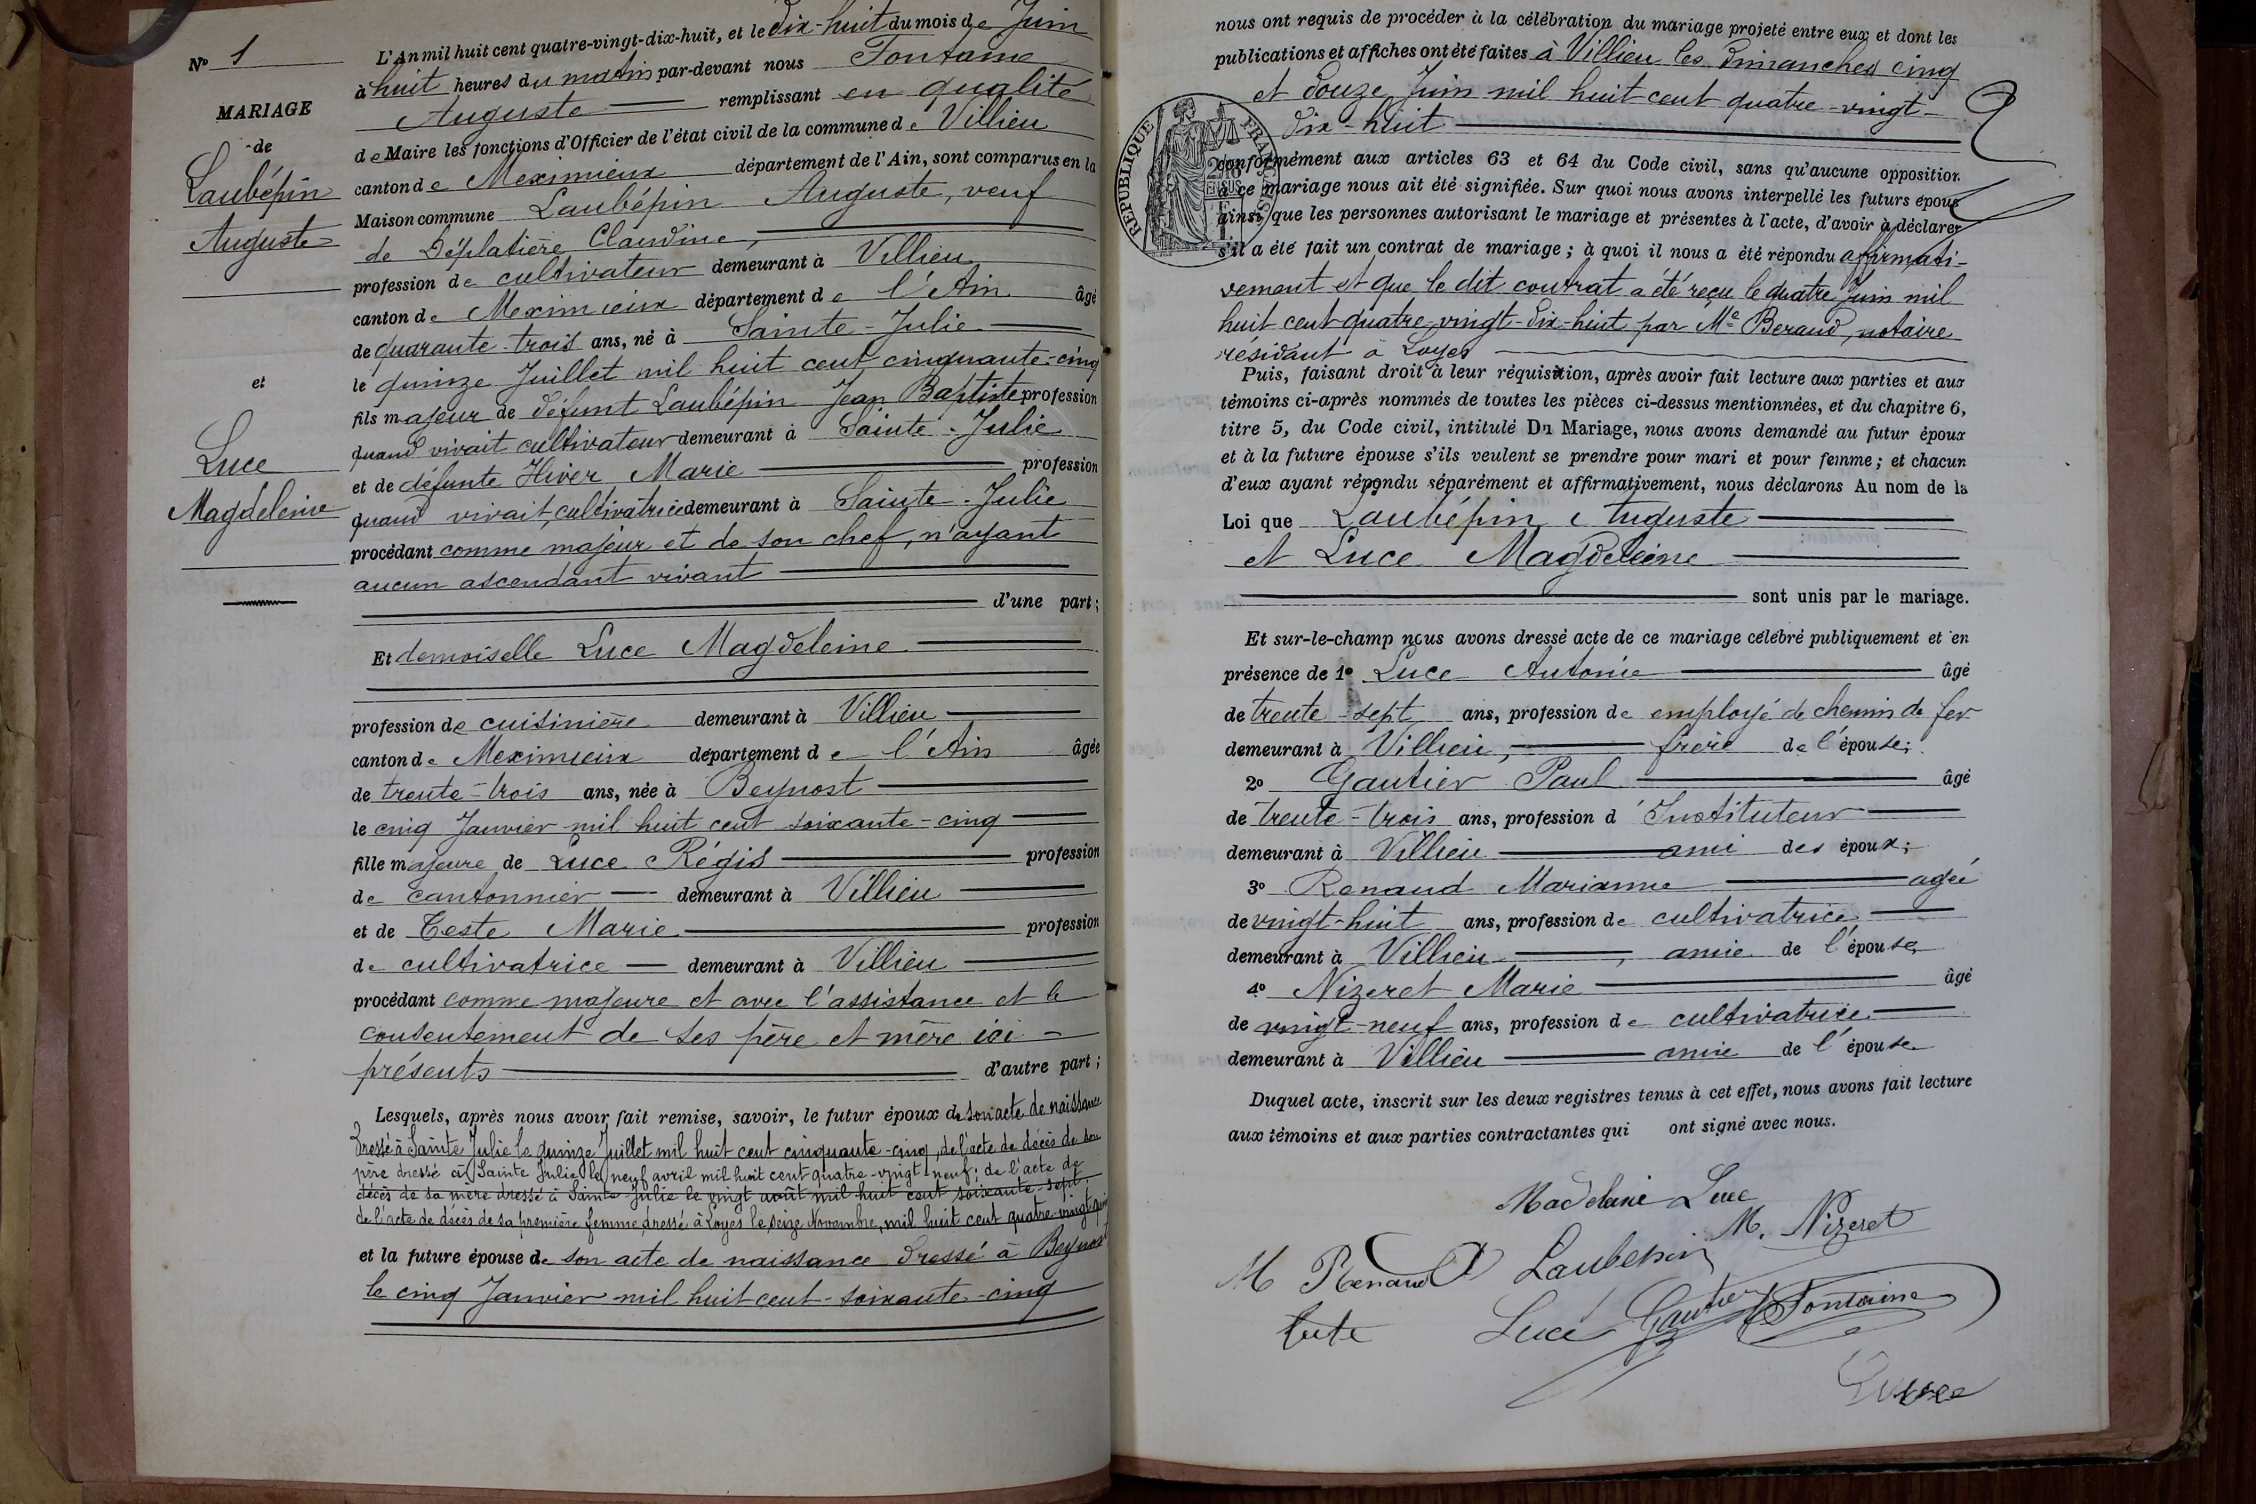 N° 1
MARIAGE
de
Laubépin
Auguste
et
Luce
Magdeleine
L'An mil huit cent quatre-vingt-dix-huit, et le dix-huit du mois de Juin
à huit heures du matin par-devant nous Fontaine
Auguste remplissant en qualité
de Maire les fonctions d'Officier de l'état civil de la commune de Villieu
canton de Meximieux département de l'Ain, sont comparus en la
Maison commune Laubépin Auguste, veuf
de Déplatière Claudine,
profession de cultivateur demeurant à Villieu
canton de Meximieux département de l'Ain âgé
de quarante-trois ans, né à Sainte-Julie
le quinze Juillet mil huit cent cinquante-cinq
fils majeur de défunt Laubépin Jean Baptiste profession
quand vivait cultivateur demeurant à Sainte-Julie
et de défunte Hiver Marie profession
quand vivait, cultivatrice demeurant à Sainte-Julie
procédant comme majeur et de son chef, n'ayant
aucun ascendant vivant
d'une part;
Et demoiselle Luce Magdeleine
profession de cuisinière demeurant à Villieu
canton de Meximieux département de l'Ain âgée
de trente-trois ans, née à Beynost
le cinq Janvier mil huit cent soixante-cinq
fille majeure de Luce Régis profession
de cantonnier demeurant à Villieu
et de Teste Marie profession
de cultivatrice demeurant à Villieu
procédant comme majeure et avec l'assistance et le
consentement de ses père et mère ici
présents d'autre part;
Lesquels, après nous avoir fait remise, savoir, le futur époux de son acte de naissance
dressé à Sainte Julie le quinze Juillet mil huit cent cinquante-cinq, de l'acte de décès de son
père dressé à Sainte Julie le neuf avril mil huit cent quatre-vingt neuf; de l'acte de
décès de sa mère dressé à Sainte Julie le vingt août mil huit cent soixante-sept;
de l'acte de décès de sa première femme, dressé à Loyes le seize Novembre, mil huit cent quatre-vingt
et la future épouse de son acte de naissance dressé à Beynost
le cinq Janvier mil huit cent-soixante-cinq
nous ont requis de procéder à la célébration du mariage projeté entre eux et dont les
publications et affiches ont été faites à Villieu les dimanches cinq
et douze Juin mil huit cent quatre-vingt-
dix-huit
RÉPUBLIQUE FRANÇAISE
conformément aux articles 63 et 64 du Code civil, sans qu'aucune opposition
à ce mariage nous ait été signifiée. Sur quoi nous avons interpellé les futurs époux
ainsi que les personnes autorisant le mariage et présentes à l'acte, d'avoir à déclarer
s'il a été fait un contrat de mariage; à quoi il nous a été répondu affirmati-
vement et que le dit contrat a été reçu le quatre Juin mil
huit cent quatre-vingt-dix-huit par Me Beraud, notaire
résidant à Loyes
Puis, faisant droit à leur réquisition, après avoir fait lecture aux parties et aux
témoins ci-après nommés de toutes les pièces ci-dessus mentionnées, et du chapitre 6,
titre 5, du Code civil, intitulé Du Mariage, nous avons demandé au futur époux
et à la future épouse s'ils veulent se prendre pour mari et pour femme; et chacun
d'eux ayant répondu séparément et affirmativement, nous déclarons Au nom de la
Loi que Laubépin Auguste
et Luce Magdeleine
sont unis par le mariage.
Et sur-le-champ nous avons dressé acte de ce mariage célébré publiquement et en
présence de 1° Luce Antonie âgé
de trente-sept ans, profession de employé de chemin de fer
demeurant à Villieu, frère de l'épouse;
2° Gautier Paul âgé
de trente-trois ans, profession d'Instituteur
demeurant à Villieu ami des époux;
3° Renaud Marianne agée
de vingt-huit ans, profession de cultivatrice
demeurant à Villieu, amie de l'épouse
4° Nizeret Marie âgé
de vingt-neuf ans, profession de cultivatrice
demeurant à Villieu amie de l'épouse
Duquel acte, inscrit sur les deux registres tenus à cet effet, nous avons fait lecture
aux témoins et aux parties contractantes qui ont signé avec nous.
Madeleine Luce
M. Nizeret
M Renaud Laubepin
Luce Gautier Fontaine
Luce